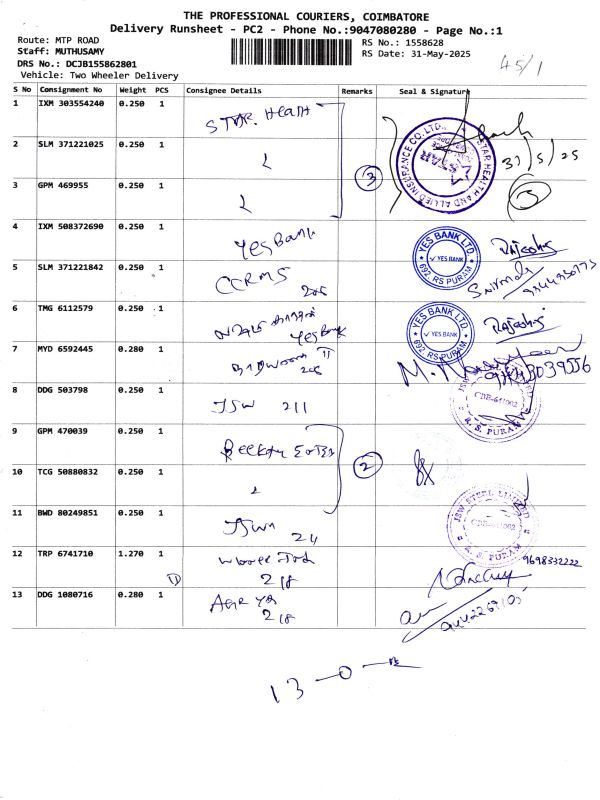 THE PROFESSIONAL COURIERS, COIMBATORE
Delivery Runsheet - PC2 - Phone No.:9047080280 - Page No.:1
Route: MTP ROAD
RS No.: 1558628
Staff: MUTHUSAMY
RS Date: 31-May-2025
45/1
DRS No.: DCJB155862801
Vehicle: Two Wheeler Delivery
S No Consignment No Weight PCS Consignee Details Remarks Seal & Signature
1 IXM 303554240 0.250 1 STAR. Health
2 SLM 371221025 0.250 1
3 GPM 469955 0.250 1
3
STAR HEALTH AND ALLIED INSURANCE CO. LTD.
31/5/25
3
4 IXM 508372690 0.250 1 Yes Bank
YES BANK LTD.
YES BANK
692, RS PURAM
5 SLM 371221842 0.250 1 CCRMS
205
6 TMG 6112579 0.250 1
Yes Bank
YES BANK LTD.
YES BANK
692, RS PURAM
7 MYD 6592445 0.280 1
8 DDG 503798 0.250 1 JSW 211
CBE-641002
R. S. PURAM
9 GPM 470039 0.250 1
10 TCG 50880832 0.250 1
2
11 BWD 80249851 0.250 1
JSW STEEL LIMITED
CBE-641002
R. S. PURAM
12 TRP 6741710 1.270 1
218
9698332222
13 DDG 1080716 0.280 1
218
13 - 0 -